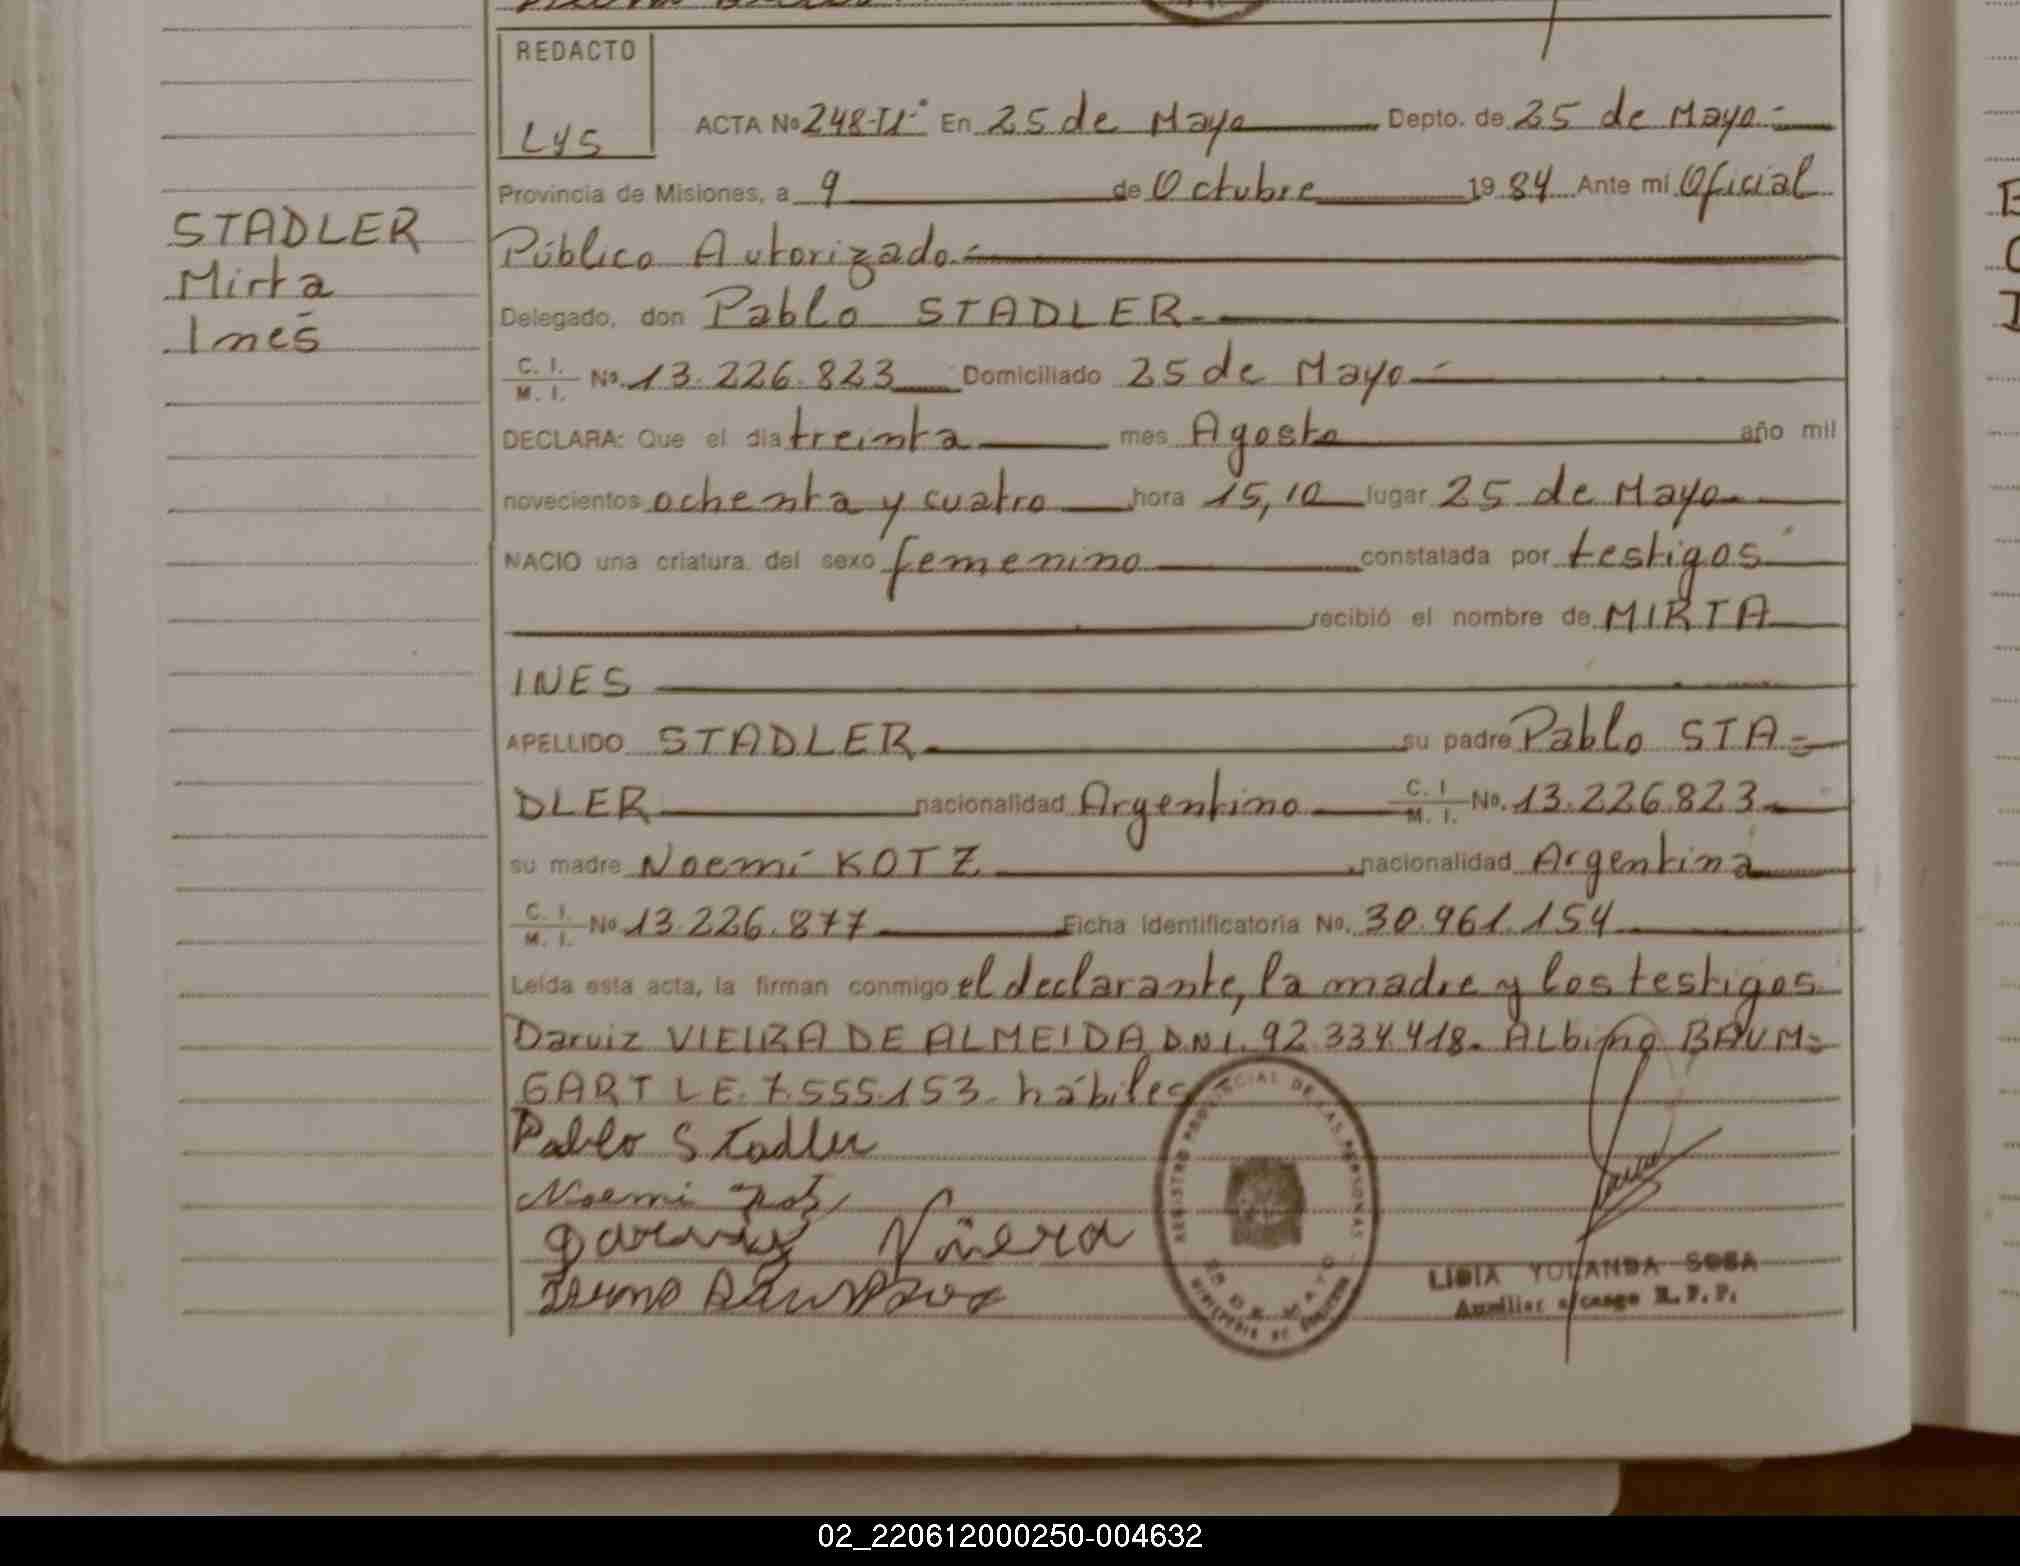 REDACTO
LYS
ACTA No 248-Tº- En 25 de Mayo Depto. de 25 de Mayo.-
Provincia de Misiones, a 9 de Octubre 1984 Ante mi Oficial
Público Autorizado.-
Delegado, don Pablo STADLER.-
C. I. M. I. No. 13.226.823 Domiciliado 25 de Mayo.-
DECLARA: Que el dia treinta mes Agosto año mil
novecientos ochenta y cuatro hora 15,10 lugar 25 de Mayo
NACIO una criatura del sexo femenino constatada por testigos
recibió el nombre de MIRTA
INES
APELLIDO STADLER su padre Pablo STA=
DLER nacionalidad Argentino C. I. M. I. No. 13.226.823
su madre Noemí KOTZ nacionalidad Argentina
C. I. M. I. No 13.226.877 Ficha Identificatoria No. 30.961.154
Leída esta acta, la firman conmigo el declarante, la madre y los testigos
Darviz VIEIRA DE ALMEIDA D.N.I. 92.334.418. Albino BAUM=
GART L.E. 7.555.153. hábiles
Pablo Stadler
Noemi
STADLER
Mirta
Inés
REGISTRO PROVINCIAL DE LAS PERSONAS
25 DE MAYO
MINISTERIO DE GOBIERNO
LIDIA YOLANDA SOSA
Auxiliar a/cargo R.P.P.
02_220612000250-004632